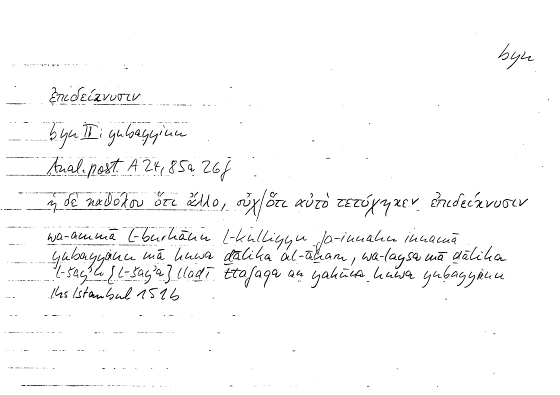 byn
ἐπιδείκνυσιν
byn II: yubayyinu
Anal. post. A 24, 85a 26f
ἡ δὲ καθόλου ὅτι ἄλλο, οὐχ/ὅτι αὐτὸ τετύχηκεν ἐπιδείκνυσιν
wa-ammā l-burhānu l-kulliyyu fa-innahu innamā
yubayyinu mā huwa ḏālika al-āḫar, wa-laysa mā ḏālika
l-šayʾu {l-šayʾa} llaḏī ttafaqa an yakūna huwa yubayyinu
Ihs Istanbul 151b